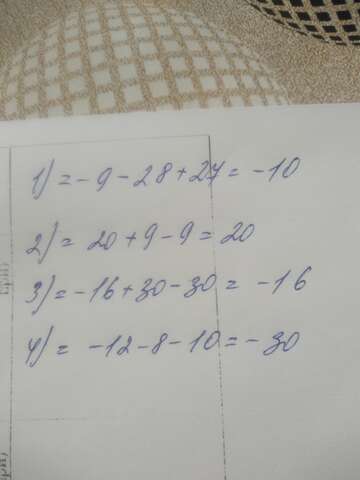 1) = -9-28+27= -10
2) = 20+9-9=20
3) = -16+30-30= -16
4) = -12-8-10=-30